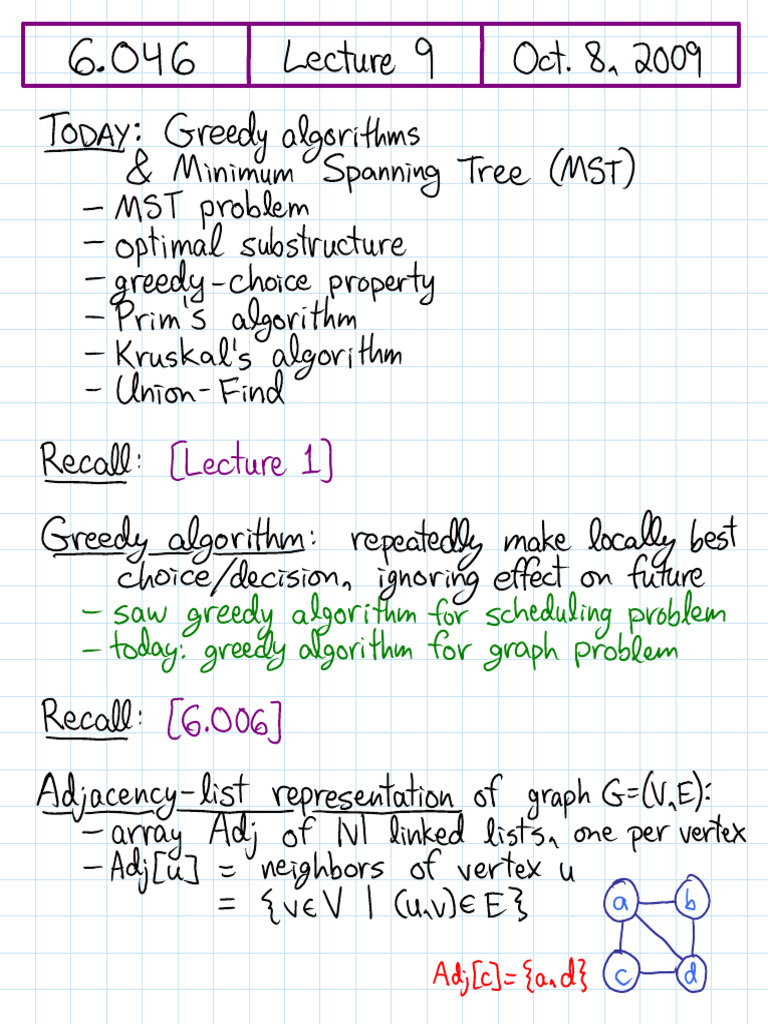 6.046 Lecture 9 Oct. 8, 2009
TODAY: Greedy algorithms
& Minimum Spanning Tree (MST)
- MST problem
- optimal substructure
- greedy-choice property
- Prim's algorithm
- Kruskal's algorithm
- Union-Find
Recall: [Lecture 1]
Greedy algorithm: repeatedly make locally best
choice/decision, ignoring effect on future
- saw greedy algorithm for scheduling problem
- today: greedy algorithm for graph problem
Recall: [6.006]
Adjacency-list representation of graph G=(V,E):
- array Adj of |V| linked lists, one per vertex
- Adj[u] = neighbors of vertex u
= {v∈V | (u,v)∈E}
a b
Adj[c]={a,d} c d